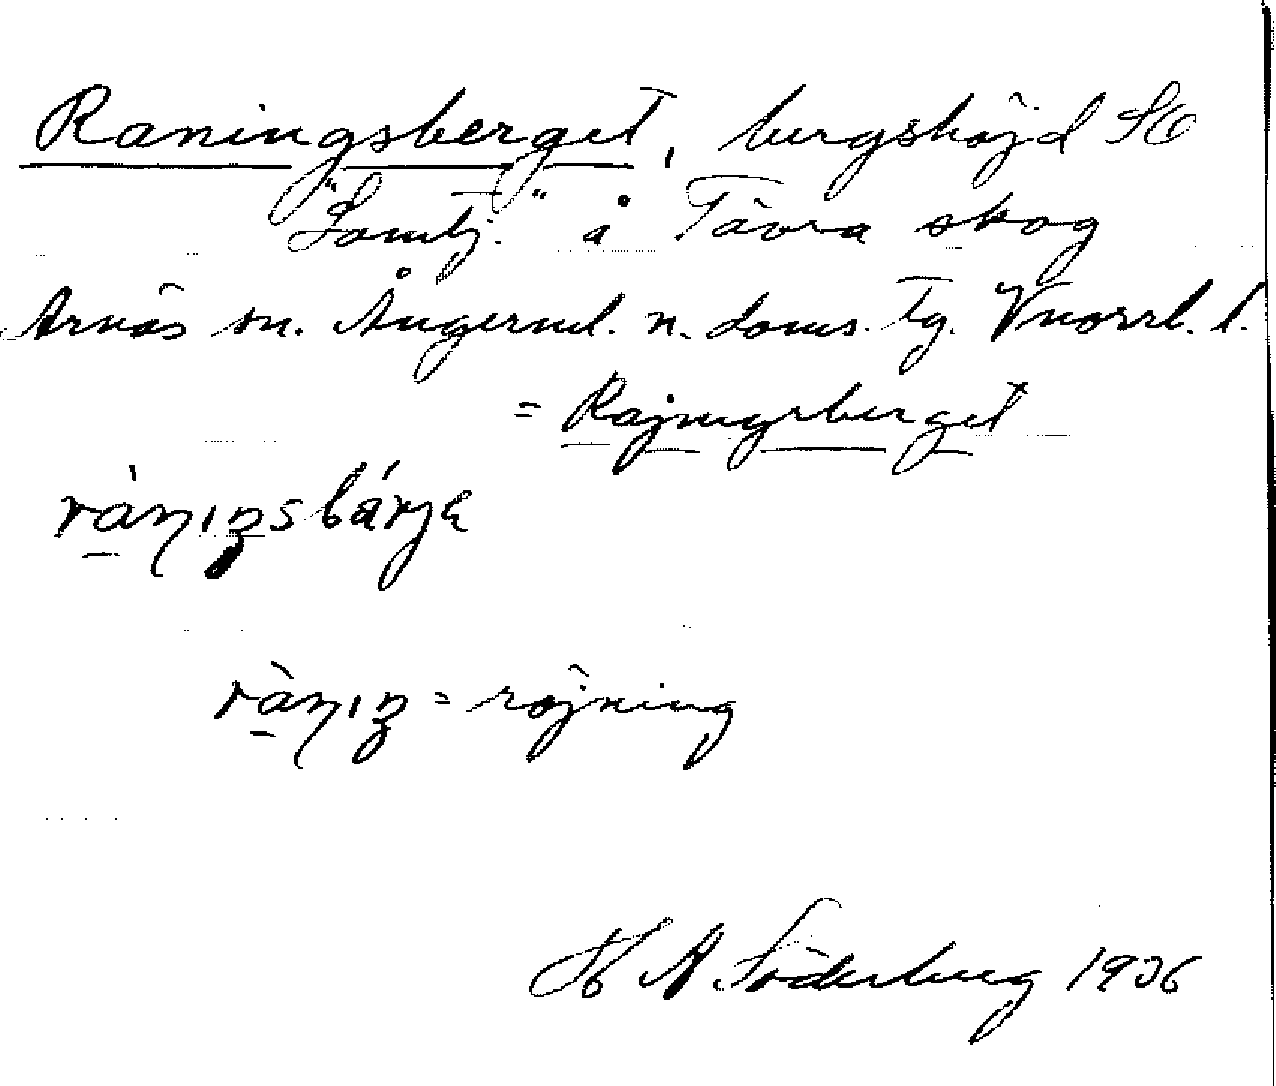 Raningsberget, bergshöjd SO
"Lomtj." å Tävra skog
Arnäs sn. Ångerml. n. doms. tg. Vnorrl. l.
= Röjningsberget
ràṇıŋsbárjɛ
ràṇıŋ = röjning
H A Söderberg 1936